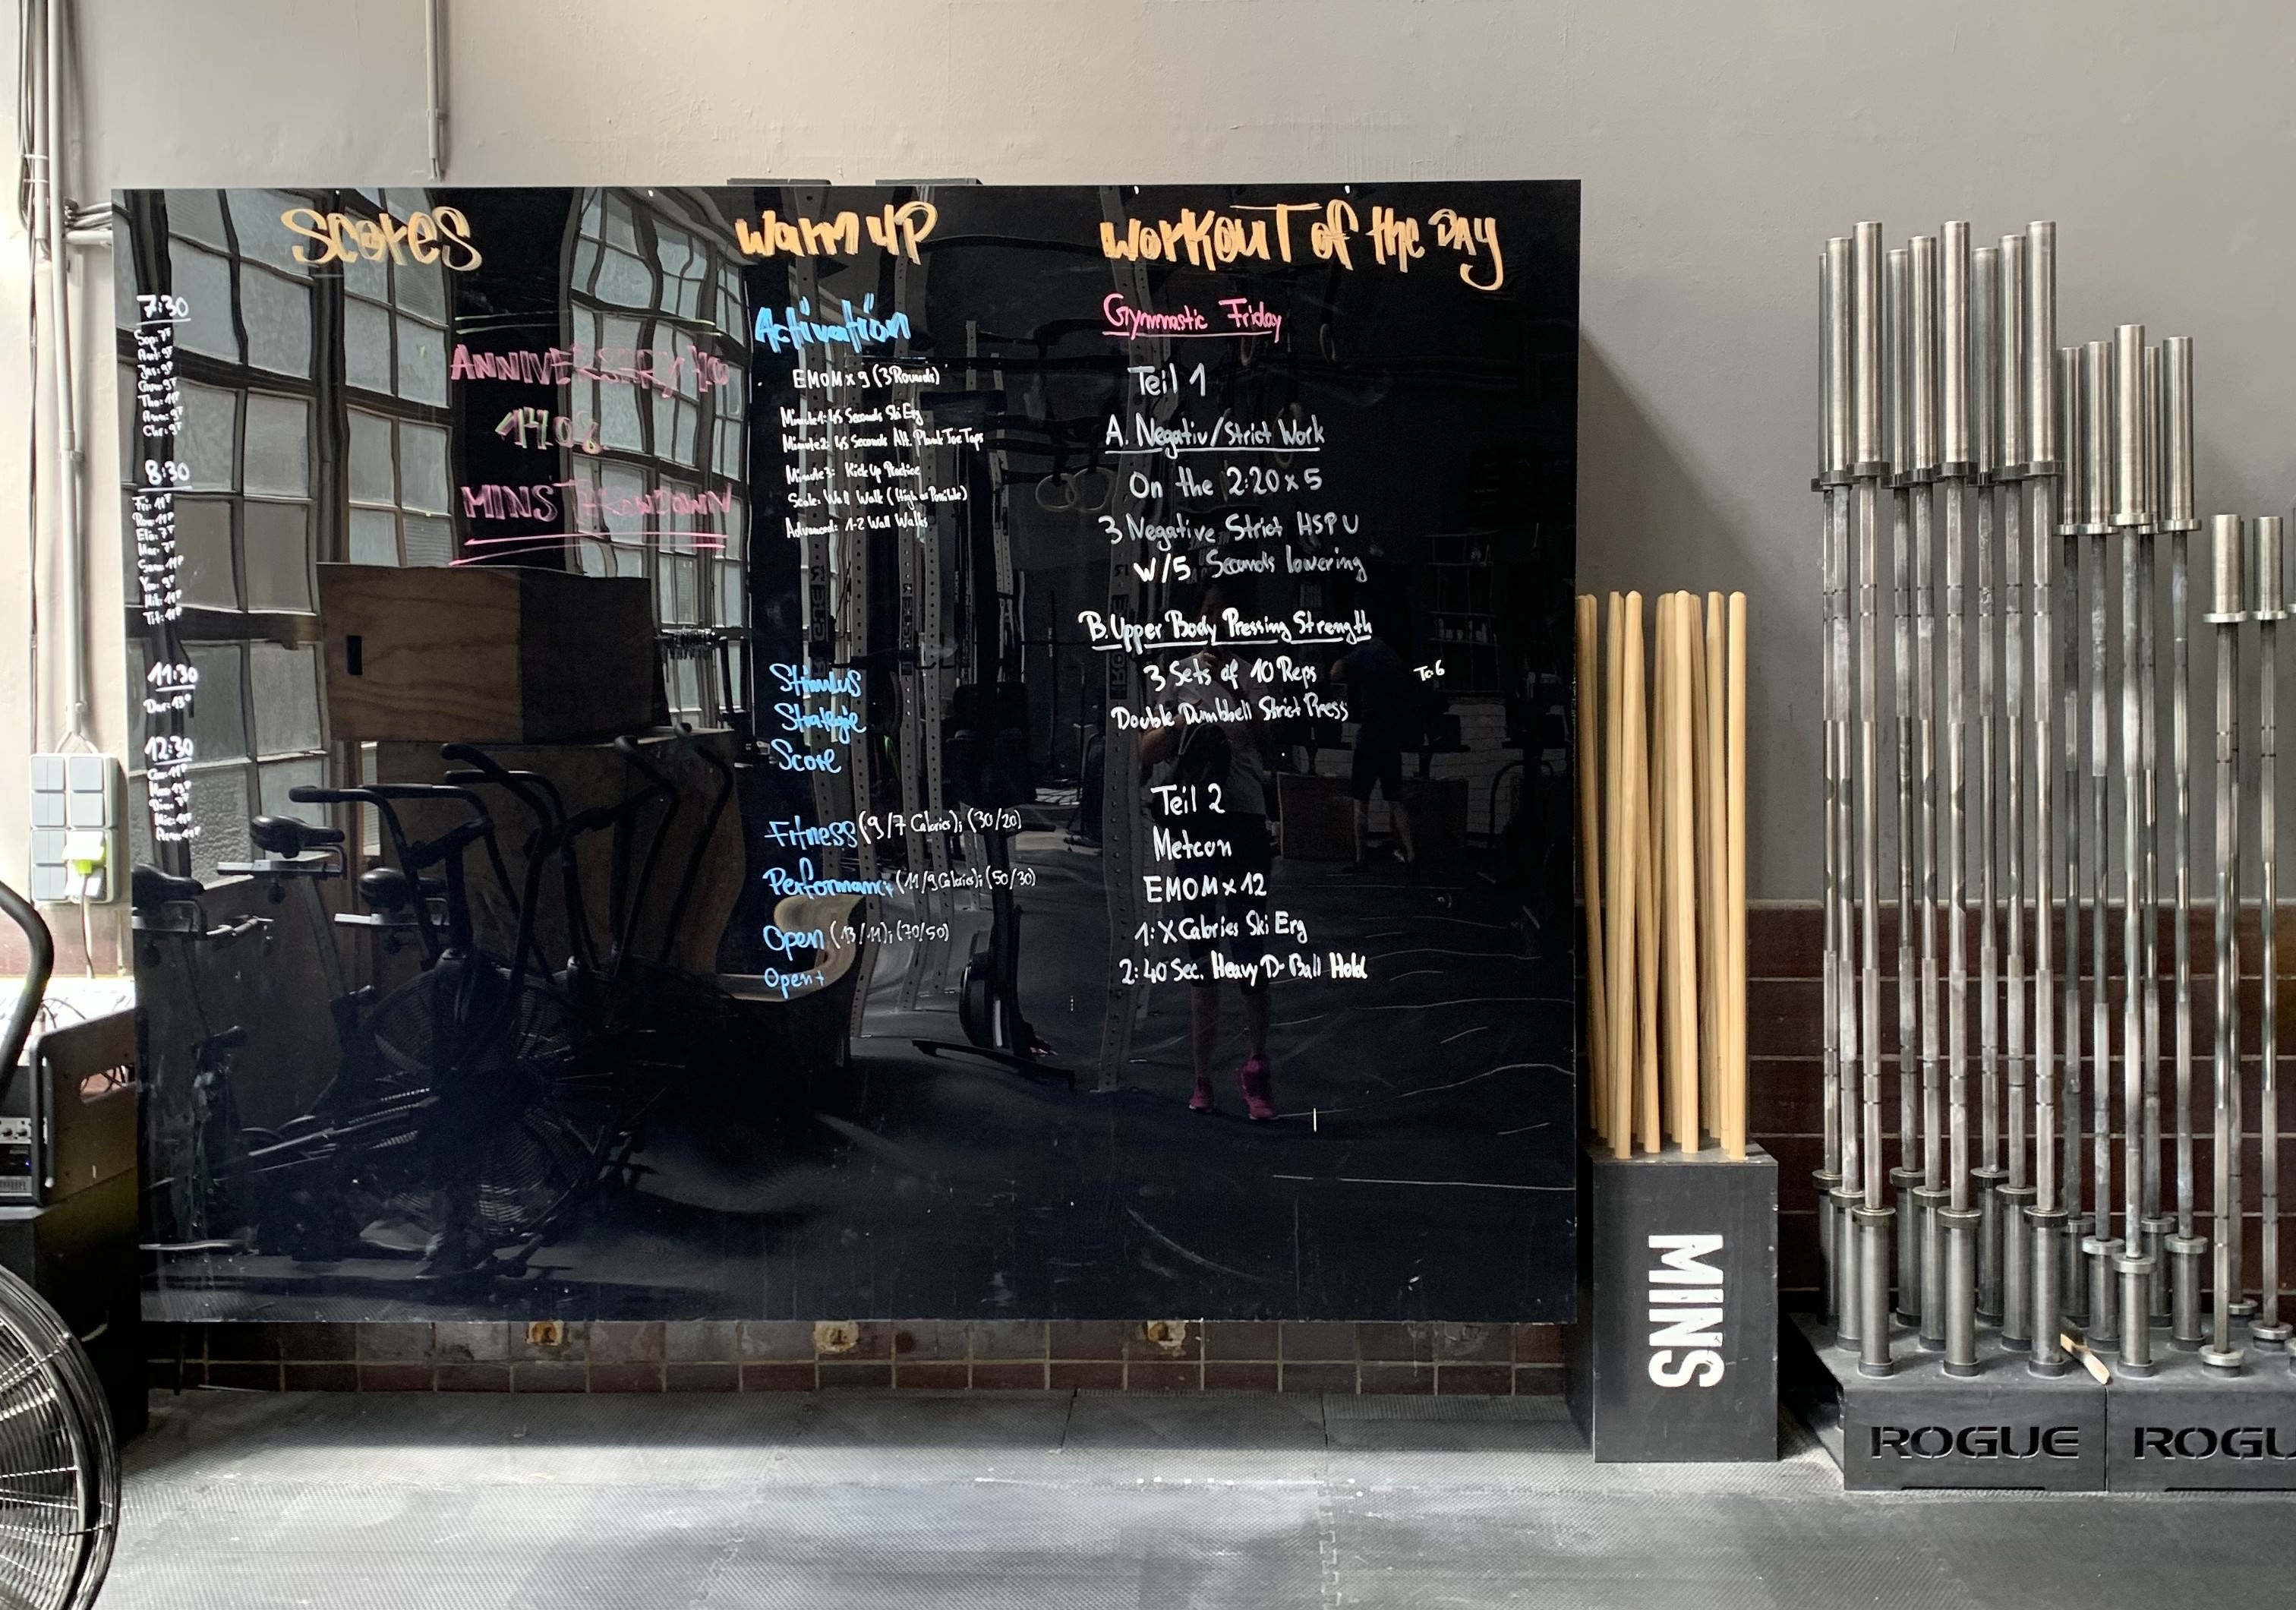 Scores
7:30
8:30
11:30
Dar: 13°
12:30
ANNIVERSARY
17.08.
MINS THROWDOWN
Warm up
Activation
EMOM x 9 (3 Rounds)
Minute 1: 45 Seconds Ski Erg
Minute 2: 45 Seconds Alt. Plank Toe Taps
Minute 3: Kick Up Practice
Scale: Wall Walk (High as Possible)
Advanced: 1-2 Wall Walks
Stimulus
Strategie
Score
Fitness (9/7 Calories); (30/20)
Performance (11/9 Calories); (50/30)
Open (13/11); (70/50)
Open+
Workout of the Day
Gymnastic Friday
Teil 1
A. Negativ/Strict Work
On the 2:20 x 5
3 Negative Strict HSPU
w/5 Seconds lowering
B. Upper Body Pressing Strength
3 Sets of 10 Reps
Double Dumbbell Strict Press
Teil 2
Metcon
EMOM x 12
1: X Calories Ski Erg
2: 40 Sec. Heavy D-Ball Hold
MINS
ROGUE
ROGU